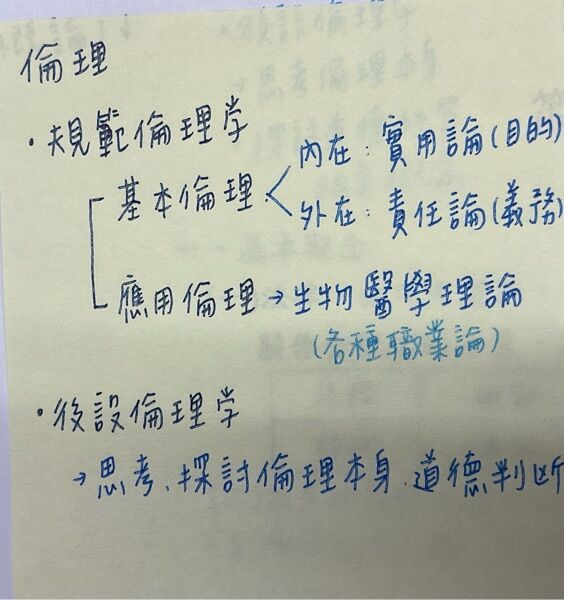 倫理
·規範倫理学
基本倫理 內在:實用論(目的)
外在:責任論(義務
應用倫理→生物醫學理論
(各種職業論)
·後設倫理学
→思考、探討倫理本身、道德判断